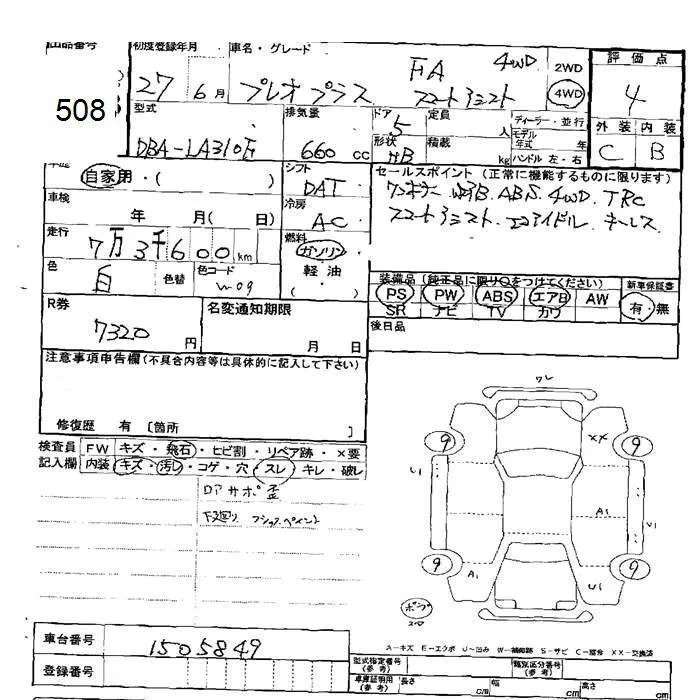 出品番号 初度登録年月 車名・グレード 評価点
508 27 6月 プレオ プラス FA 4WD スマートアシスト 2WD 4WD 4
型式 排気量 ドア 5 定員 人 ディーラー・並行 外装 内装
DBA-LA310F 660 CC 形状 HB 積載 kg モデル年式 年 ハンドル 左・右 C B
自家用・( ) シフト DAT セールスポイント (正常に機能するものに限ります)
車検 年 月( 日) 冷房 AC ABS. 4WD. TRC
スマートアシスト. エコアイドル キーレス
走行 7万3千600km 燃料 ガソリン 軽油 ( )
色 白 色替 色コード W-09
装備品 (純正品に限り○をつけてください) 新車保証書
PS PW ABS エアB AW 有・無
SR ナビ TV カワ
R券 7320円 名変通知期限 月 日 後日品
注意事項申告欄(不具合内容等は具体的に記入して下さい)
修復歴 有 〔箇所 〕
検査員 FW キズ・飛石・ヒビ割・リペア跡・×要
記入欄 内装 キズ・汚レ・コゲ・穴・スレ・キレ・破レ
ロアサポ 歪
下廻り フショクペイント
ワレ
9 XX 9
U1 A1 U1
9 9
A1 U1
A-キズ E-エクボ U-凹み W-補修跡 S-サビ C-腐蝕 XX-交換済
車台番号 1505849 型式指定番号 (参考) 類別区分番号 (参考)
登録番号 車庫証明用 (参考) 長さ cm 幅 cm 高さ cm